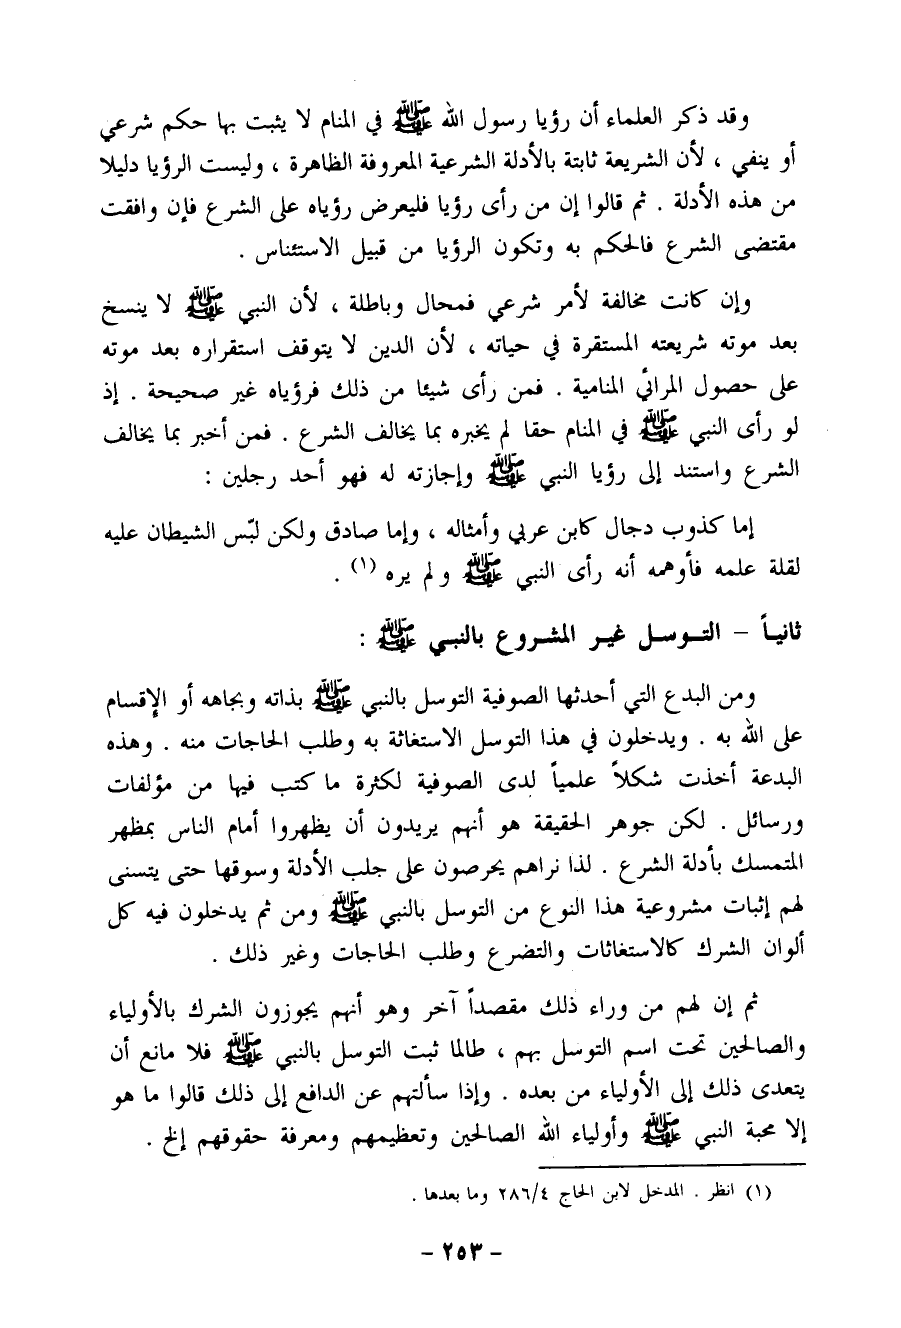 وقد ذكر العلماء أن رؤيا رسول الله ﷺ في المنام لا يثبت بها حكم شرعي
أو ينفي ، لأن الشريعة ثابتة بالأدلة الشرعية المعروفة الظاهرة ، وليست الرؤيا دليلا
من هذه الأدلة . ثم قالوا إن من رأى رؤيا فليعرض رؤياه على الشرع فإن وافقت
مقتضى الشرع فالحكم به وتكون الرؤيا من قبيل الاستئناس .
وإن كانت مخالفة لأمر شرعي فمحال وباطلة ، لأن النبي ﷺ لا ينسخ
بعد موته شريعته المستقرة في حياته ، لأن الدين لا يتوقف استقراره بعد موته
على حصول المرائي المنامية . فمن رأى شيئا من ذلك فرؤياه غير صحيحة . إذ
لو رأى النبي ﷺ في المنام حقا لم يخبره بما يخالف الشرع . فمن أخبر بما يخالف
الشرع واستند إلى رؤيا النبي ﷺ وإجازته له فهو أحد رجلين :
إما كذوب دجال كابن عربي وأمثاله ، وإما صادق ولكن لبّس الشيطان عليه
لقلة علمه فأوهمه أنه رأى النبي ﷺ ولم يره (١) .
ثانياً – التوسل غير المشروع بالنبي ﷺ :
ومن البدع التي أحدثها الصوفية التوسل بالنبي ﷺ بذاته وبجاهه أو الإقسام
على الله به . ويدخلون في هذا التوسل الاستغاثة به وطلب الحاجات منه . وهذه
البدعة أخذت شكلاً علمياً لدى الصوفية لكثرة ما كتب فيها من مؤلفات
ورسائل . لكن جوهر الحقيقة هو أنهم يريدون أن يظهروا أمام الناس بمظهر
المتمسك بأدلة الشرع . لذا نراهم يحرصون على جلب الأدلة وسوقها حتى يتسنى
لهم إثبات مشروعية هذا النوع من التوسل بالنبي ﷺ ومن ثم يدخلون فيه كل
ألوان الشرك كالاستغاثات والتضرع وطلب الحاجات وغير ذلك .
ثم إن لهم من وراء ذلك مقصداً آخر وهو أنهم يجوزون الشرك بالأولياء
والصالحين تحت اسم التوسل بهم ، طالما ثبت التوسل بالنبي ﷺ فلا مانع أن
يتعدى ذلك إلى الأولياء من بعده . وإذا سألتهم عن الدافع إلى ذلك قالوا ما هو
إلا محبة النبي ﷺ وأولياء الله الصالحين وتعظيمهم ومعرفة حقوقهم إلخ .
(١) انظر . المدخل لابن الحاج ٢٨٦/٤ وما بعدها .
- ٢٥٣ -